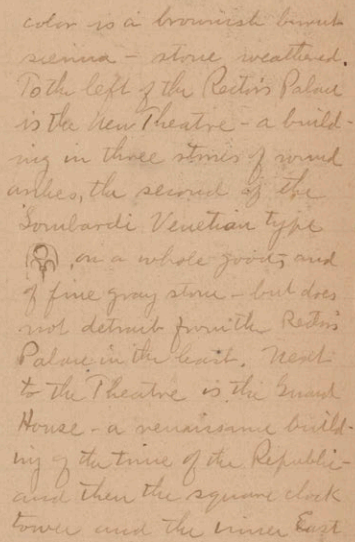 color is a brownish burnt
sienna - stone weathered.
To the left of the Rector's Palace
is the New Theatre - a build-
ing in three stories of round
arches, the second of the
Lombardi Venetian type
, on a whole good, and
of fine gray stone - but does
not detract from the Rector's
Palace in the least. Next
to the Theatre is the Guard
House - a renaissance build-
ing of the time of the Republic -
and then the square clock
tower and the inner East